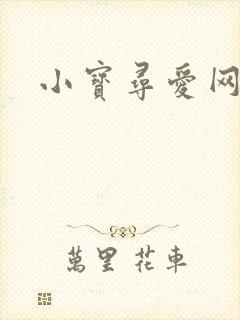 小寶尋愛网
萬里花車